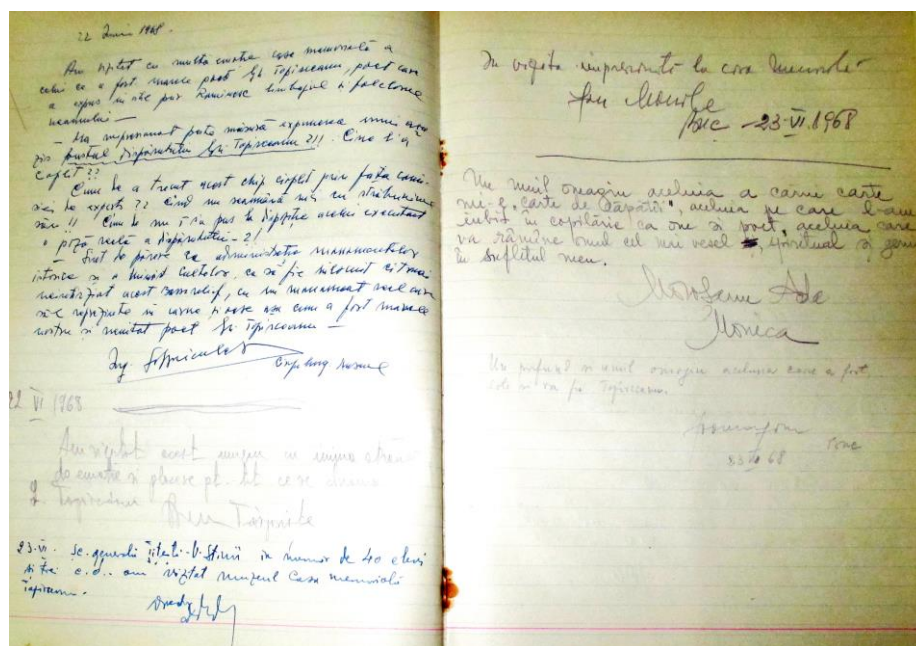 22 Iunie 1968.
Am vizitat cu multă emoție casa memorială a
celui ce a fost marele poet Gh Topîrceanu, poet care
a expus în stil pur Românesc limbajul și folclorul
neamului —
— M-a impresionat foarte expunerea unui
zis bustul dispărutului Gh. Topîrceanu ?!! Cine l'a
cioplit ??
Cum de a trecut acest chip cioplit prin fața comi-
siei de experți ?? Cînd nu seamănă nici cu străbunicul
său !! Cum de nu i s'a pus la dispoziție acelui executant
o poză reală a dispărutului - ?!
— Sînt de părere ca administrația monumentelor
istorice și a Cultelor, ca să fie înlocuit cît mai
neîntîrziat acest basorelief, cu un monument real care
să-l reprezinte în carne și oase așa cum a fost marele
nostru și neuitat poet Gh. Topîrceanu —
Ing.
22 VI 1968
Am vizitat acest muzeu cu inima
de emoție și plăcere pt. tot ce se cheamă
G. Topîrceanu
23.VI. Sc. generală Pitești în număr de 40 elevi
și trei c.d.. am vizitat muzeul Casa memorială
Topîrceanu.
În vizită la casa memorială
Buc - 23-VI.1968
Un umil omagiu aceluia a cărui carte
"carte de căpătîi", aceluia pe care l-am
iubit în copilărie ca om și poet, aceluia care
va rămîne omul cel mai vesel, spiritual și
în sufletul meu.
Ada
Monica
Un profund și umil omagiu aceluia care a fost,
este și va fi Topîrceanu.
Buc
23 VI 68